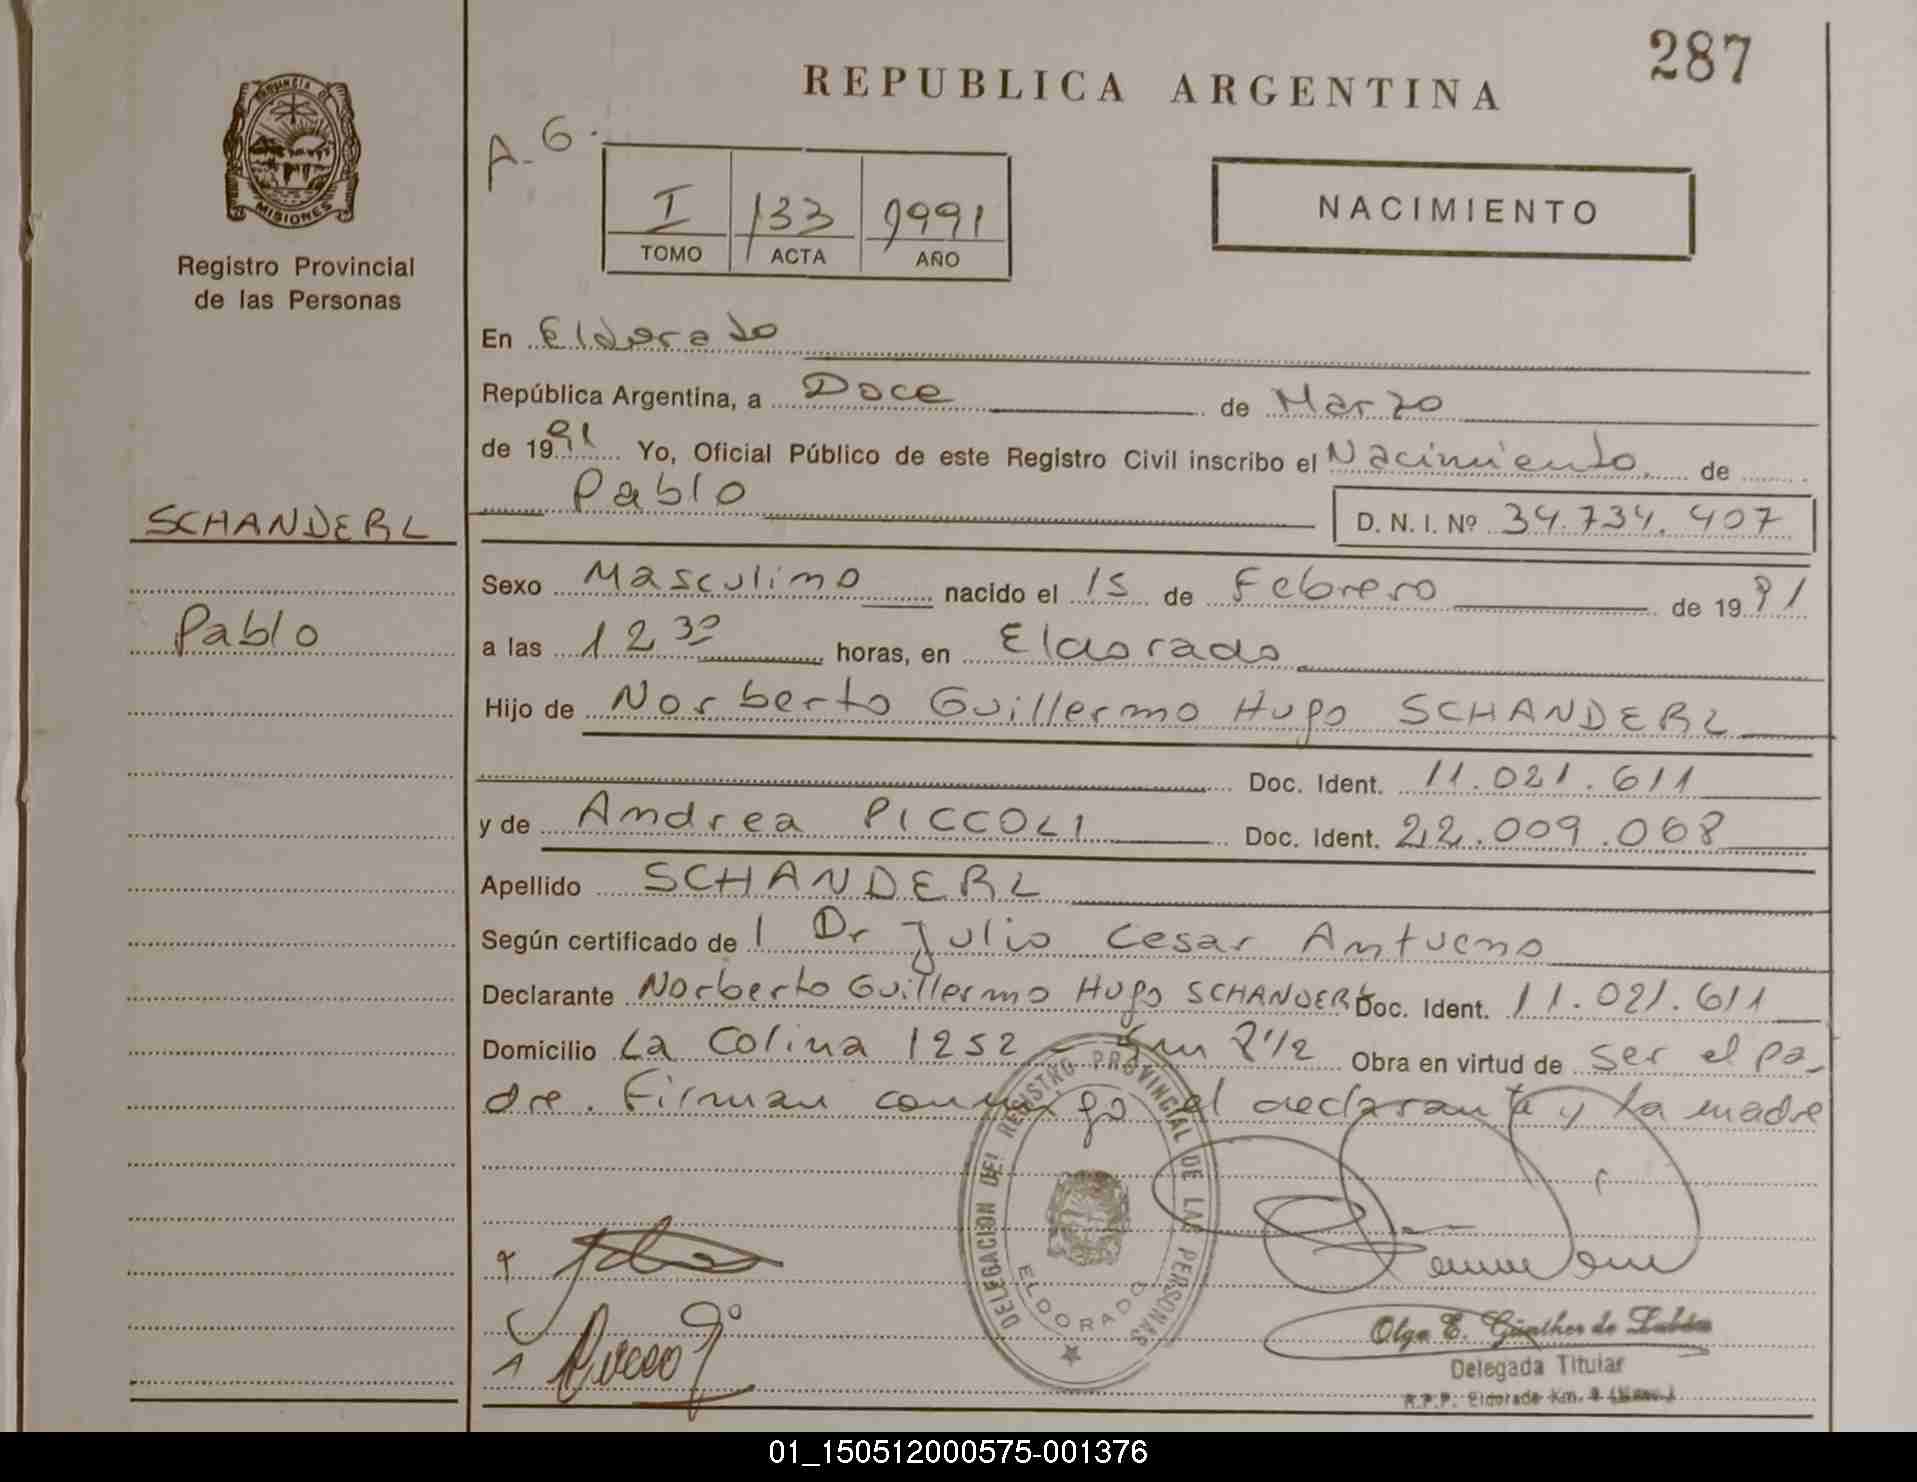 287
REPUBLICA ARGENTINA
PROVINCIA D
MISIONES
Registro Provincial
de las Personas
A-6.
I 133 1991
TOMO ACTA AÑO
NACIMIENTO
En Eldorado
República Argentina, a Doce de Marzo
de 1991 Yo, Oficial Público de este Registro Civil inscribo el Nacimiento de
Pablo D. N. I. Nº 34.734.407
SCHANDERL
Sexo Masculino nacido el 15 de Febrero de 1991
Pablo
a las 12 30 horas, en Eldorado
Hijo de Norberto Guillermo Hugo SCHANDERL
Doc. Ident. 11.021.611
y de Andrea PICCOLI Doc. Ident. 22.009.068
Apellido SCHANDERL
Según certificado de l Dr Julio Cesar Antueno
Declarante Norberto Guillermo Hugo SCHANDERL Doc. Ident. 11.021.611
Domicilio La Colina 1252 - Km 2 1/2 Obra en virtud de ser el pa-
dre. Firman conmigo el declarante y la madre
DELEGACION DEL REGISTRO PROVINCIAL DE LAS PERSONAS
ELDORADO
Olga E. Günther de
Delegada Titular
R.P.P. Eldorado Km. 9
01_150512000575-001376